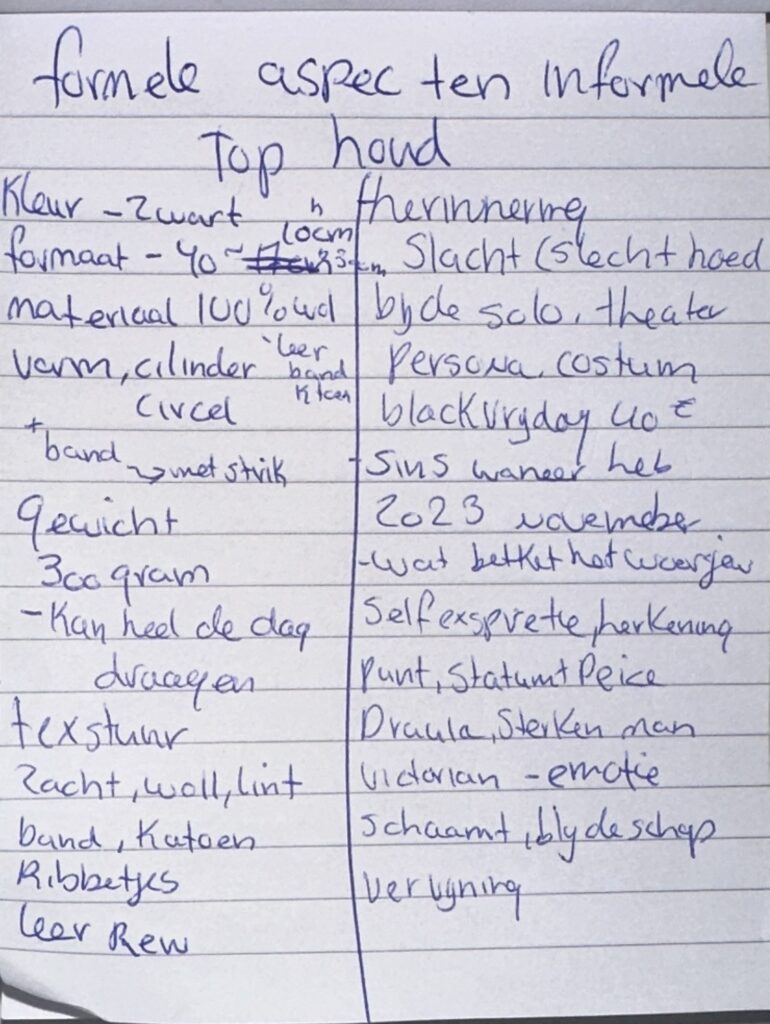 formele aspecten informele
Top houd
Kleur - zwart
h 10cm
formaat - 40 ~ 33cm
materiaal 100% wol
varm, cilinder
leer
band
Ktoen
Circel
+ band
→ met strik
gewicht
300 gram
- Kan heel de dag
draagen
texstuur
Zacht, woll, lint
band, Katoen
Ribbetjes
leer Rew
therinnering
Slacht (slecht hoed
byde solo, theater
Persona, costum
blackvryday 40 €
- Sins waneer heb
2023 november
- wat betket hot
Selfexspretie, herkening
punt, Statumt Peice
Draula, Sterken man
Victorian - emotie
schaamt, blydeschap